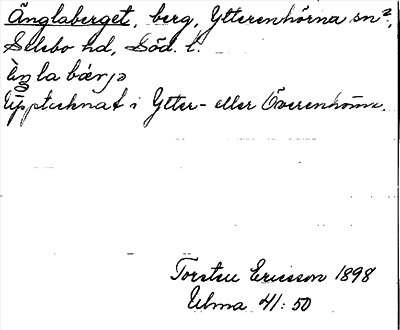 Änglaberget, berg, Ytterenhörna sn?,
Selebo hd, Söd. l.
Upptecknat i Ytter- eller Överenhörna.
Torsten Ericsson 1898
Ulma 41:50